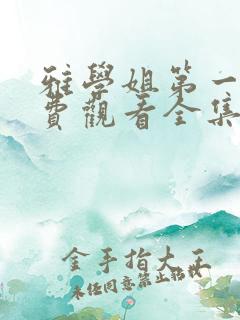 雅學姐第一
費觀看全集
金手指大王
未经同意禁止转载